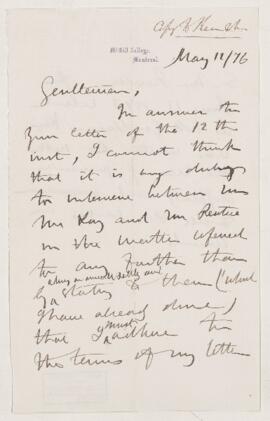 McGill College,
Montreal.
May 12/76
Gentlemen,
In answer to
your letter of the 12th
inst, I cannot think
that it is my duty
to intervene between Mr
Kay and Mr
in the matter referred
to any further than
by stating to them (which
I have already done)
that I must adhere to
the terms of my letter